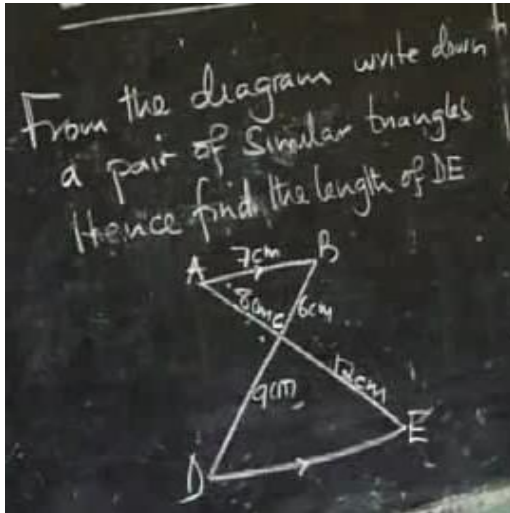 From the diagram write down
a pair of Similar triangles
Hence find the length of DE
7cm
A
B
8cm
C
6cm
9cm
12cm
E
D